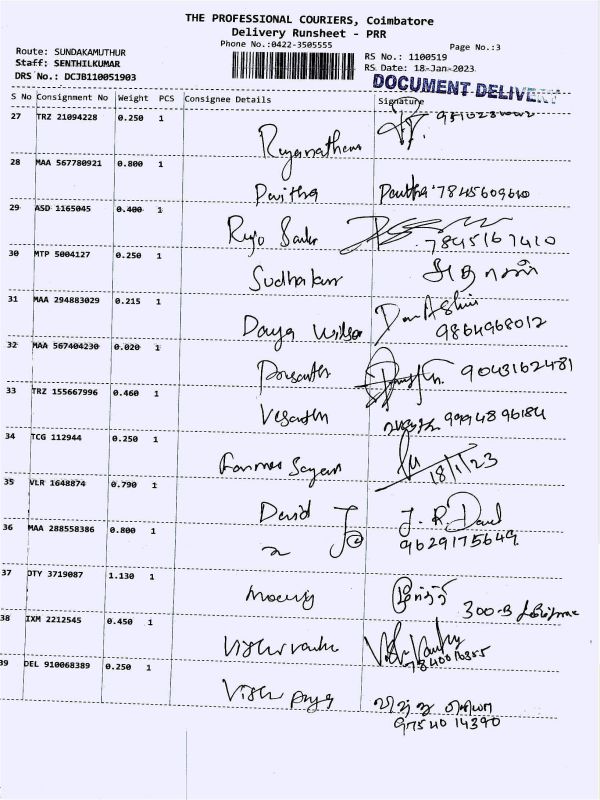 THE PROFESSIONAL COURIERS, Coimbatore
Delivery Runsheet - PRR
Phone No.:0422-3505555
Page No.:3
Route: SUNDAKAMUTHUR
Staff: SENTHILKUMAR
DRS No.: DCJB110051903
RS No.: 1100519
RS Date: 18-Jan-2023
DOCUMENT DELIVERY
S No Consignment No Weight PCS Consignee Details Signature
27 TRZ 21094228 0.250 1
28 MAA 567780921 0.800 1
Pavitha Pavitha 7845609610
29 ASD 1165045 0.400 1
7845167410
30 MTP 5004127 0.250 1
Sudhakar சுதாகன்
31 MAA 294883029 0.215 1
Daya Wilson
9864968012
32 MAA 567404230 0.020 1
Prasanth 9043162481
33 TRZ 155667996 0.460 1
Vasanth 9994896184
34 TCG 112944 0.250 1
18/1/23
35 VLR 1648874 0.790 1
David J. R. David
36 MAA 288558386 0.800 1
9629175649
37 OTY 3719087 1.130 1
300-B
38 IXM 2212545 0.450 1
39 DEL 910068389 0.250 1
Vishnu Priya விஷ்ணு பிரியா
97540 14390